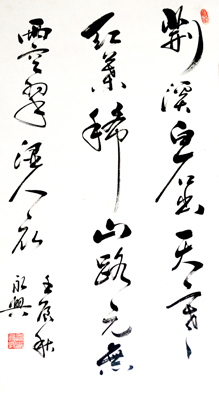 荆溪白石出天寒
红葉稀山路元無
雨空翠湿人衣
壬辰秋
永興